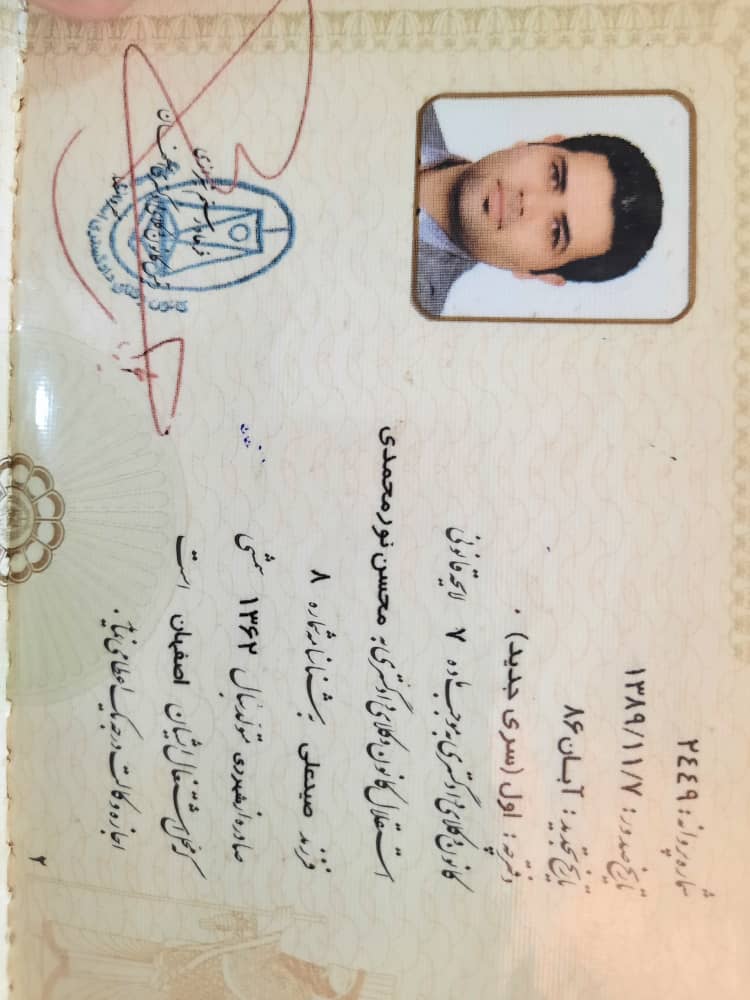 شماره پروانه: ۲۴۴۹
تاریخ صدور: ۱۳۸۹/۱۱/۷
تاریخ تجدید: آبان ۸۶
دفترچه: اول (سری جدید).
کانون وکلای دادگستری به موجب ماده ۷ لایحه قانونی
استقلال کانون وکلای دادگستری به محسن نورمحمدی
فرزند صیدعلی به شناسنامه شماره ۸
صادره از متولد سال ۱۳۶۲ شمسی
که محل اشتغال ایشان اصفهان است
اجازه وکالت درجه یک اعطا می نماید.
۲